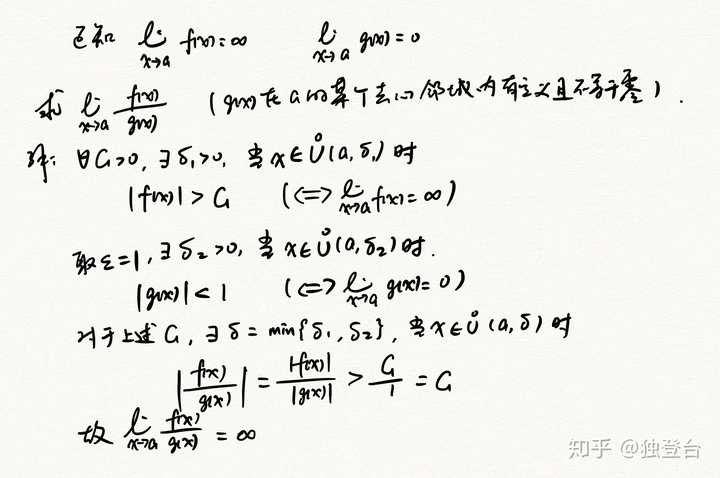 已知 lim x→a f(x)=∞ lim x→a g(x)=0
求 lim x→a f(x)/g(x) (g(x)在a的某个去心邻域内有定义且不等于零).
解: ∀G>0, ∃δ₁>0, 当x∈Ů(a,δ₁)时
|f(x)|>G (<=> lim x→a f(x)=∞)
取ε=1, ∃δ₂>0, 当x∈Ů(a,δ₂)时.
|g(x)|<1 (<=> lim x→a g(x)=0)
对于上述G, ∃δ=min{δ₁,δ₂}, 当x∈Ů(a,δ)时
|f(x)/g(x)| = |f(x)|/|g(x)| > G/1 = G
故 lim x→a f(x)/g(x) = ∞
知乎 @独登台